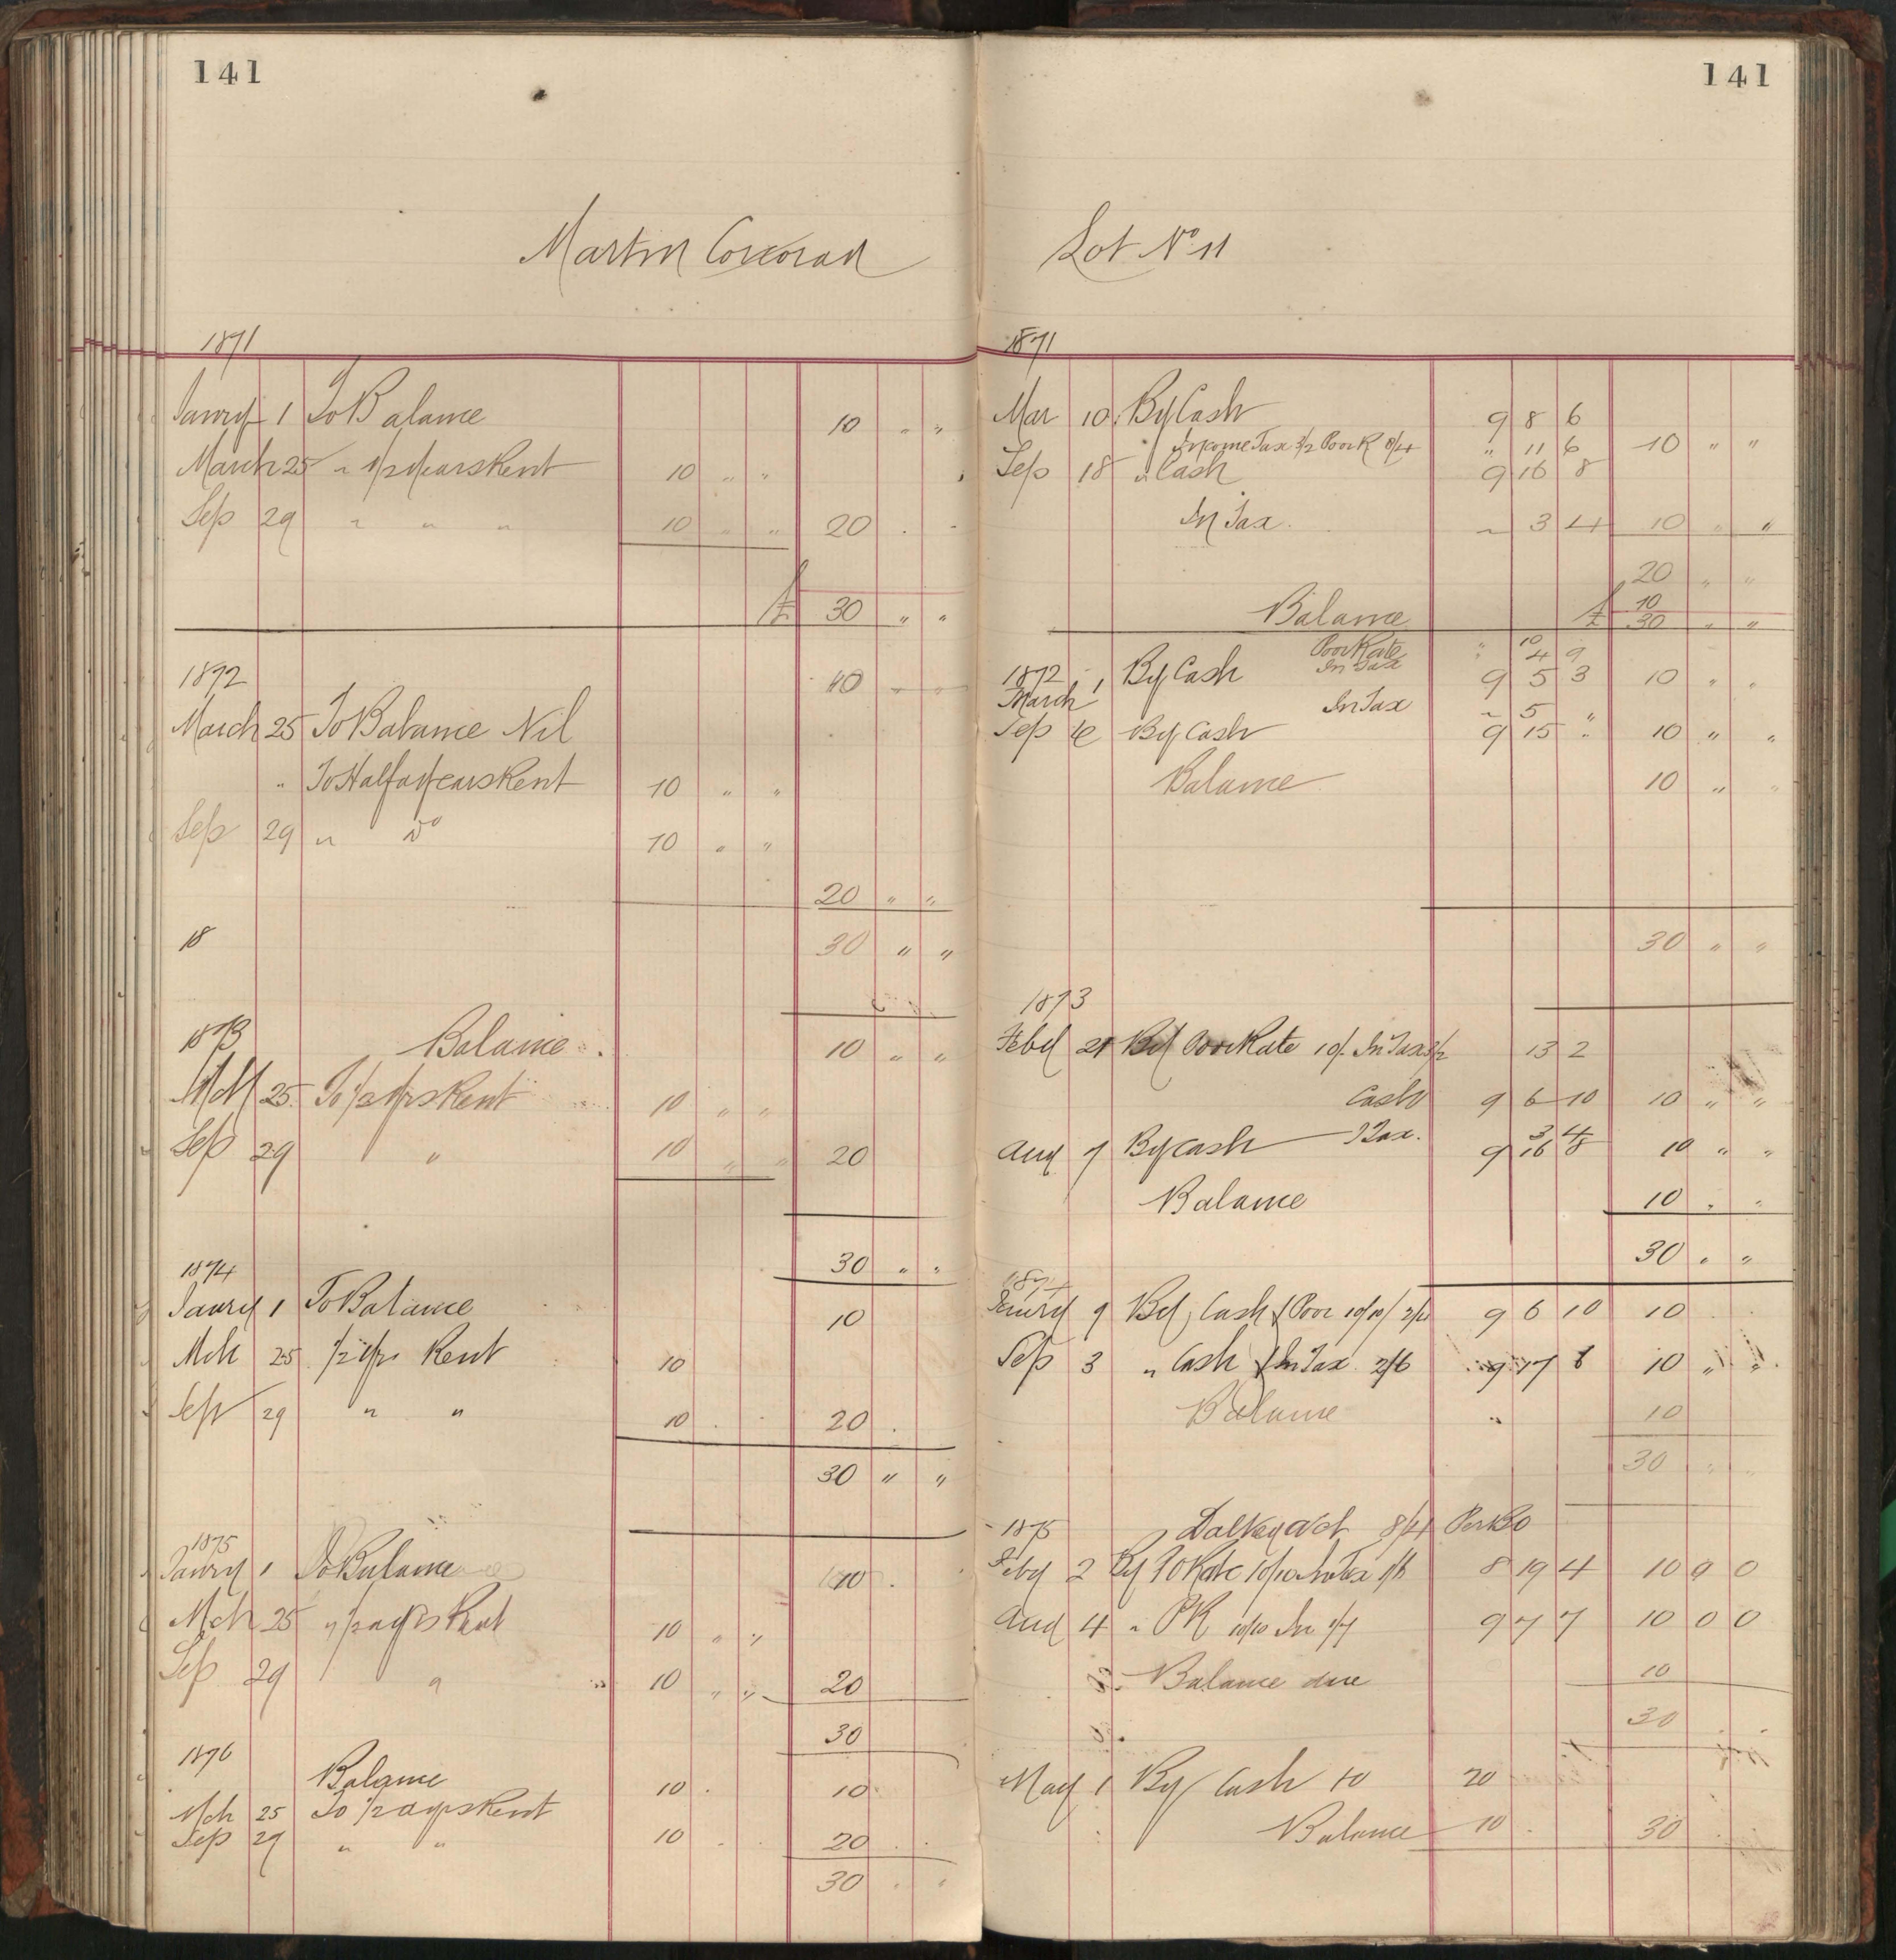 141
Martin Corcoran
1871
Janry 1 To Balance 10 " "
March 25 " 1/2 years Rent 10 " "
Sep 29 " " " 10 " " 20 . "
£ 30 " "
1872 10 " "
March 25 To Balance Nil
" To Half a years Rent 10 " "
Sep 29 " Do 10 " "
20 " "
18 30 " "
1873 Balance 10 " "
Mch 25 To 1/2 yrs Rent 10 " "
Sep 29 " 10 " " 20
30 " "
1874
Janry 1 To Balance 10
Mch 25 1/2 yr Rent 10
Sep 29 " " 10 . . 20 .
30 " "
1875
Janry 1 To Balance 10 .
Mch 25 " 1/2 a yrs Rent 10 " "
Sep 29 " 10 " " 20
30
1876
Balance 10 . 10
Mch 25 To 1/2 a yrs Rent
Sep 29 " " 10 . . 20 . .
30 " "
141
Lot No 11
1871
Mar 10 By Cash 9 8 6
" Income Tax 3/2 Poor R 8/4 " 11 6 10 " "
Sep 18 " Cash 9 16 8
In Tax. " 3 4 10 " "
20 " "
10
Balance £ 30 " "
Poor Rate " 10
In Tax 4 9
1872 March 1 By Cash 9 5 3 10 " "
In Tax " 5 "
Sep By Cash 9 15 " 10 " "
Balance 10 " "
30 " "
1873
Feby 21 By Poor Rate 10/. In Tax 3/2 13 2
Cash 9 6 10 10 " "
I Tax. 3 4
Aug 7 By Cash 9 16 8 10 " "
Balance 10 " "
30 " "
1874
Janry 9 By Cash Poor 10/10/ 2/4 9 6 10 10
Sep 3 " Cash In Tax 2/6 9 17 6 10 " "
Balance " 10
30 " "
1875 Dalkey Act 8/4
Feby 2 By P Rate 10/10 8 19 4 10 0 0
Aug 4 " PR 10/10 In 1/7 9 7 7 10 0 0
Balance due 10
30 . .
May 1 By Cash 10 20
Balance 10 . 30